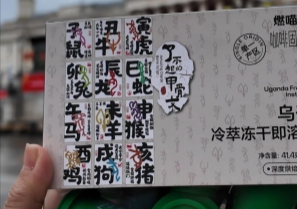 子鼠 丑牛 寅虎
卯兔 辰龙 巳蛇
午马 未羊 申猴
酉鸡 戌狗 亥猪
了不起的甲骨文
燃喵
咖啡
单一产区
Uganda Fre
Inst
乌
冷萃冻干即溶
净含量：41.4
深度烘焙